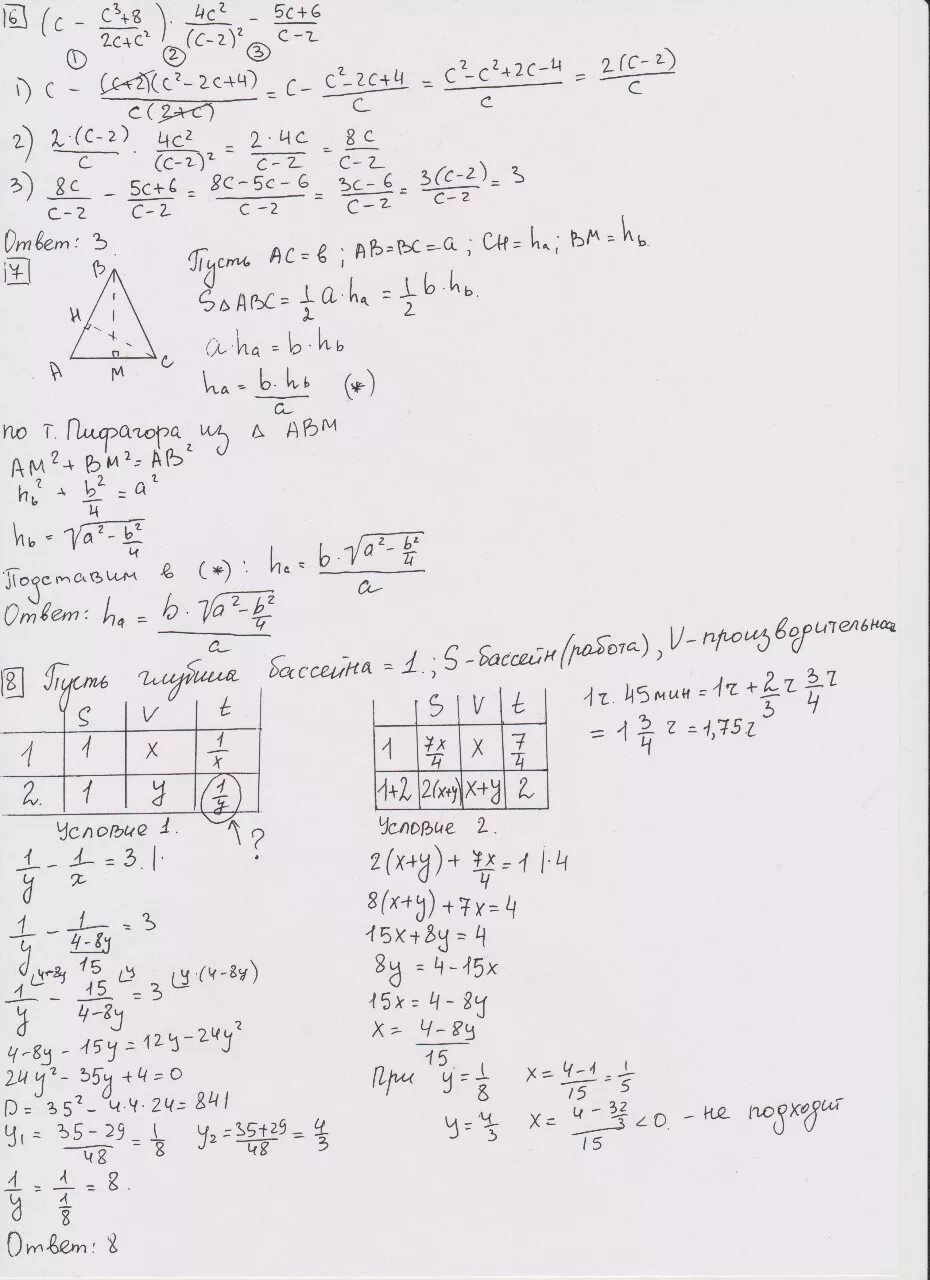 6 (c - (c³+8)/(2c+c²)) · 4c²/(c-2)² - (5c+6)/(c-2)
① ② ③
1) c - ((c+2)(c²-2c+4))/(c(2+c)) = c - (c²-2c+4)/c = (c²-c²+2c-4)/c = 2(c-2)/c
2) 2·(c-2)/c · 4c²/(c-2)² = 2·4c/(c-2) = 8c/(c-2)
3) 8c/(c-2) - (5c+6)/(c-2) = (8c-5c-6)/(c-2) = (3c-6)/(c-2) = 3(c-2)/(c-2) = 3
Ответ: 3
7 Пусть AC=b; AB=BC=a; CH=hₐ; BM=h_b
B
H
A M C
S△ABC = 1/2 a·hₐ = 1/2 b·h_b.
a·hₐ = b·h_b
hₐ = b·h_b/a (*)
по т. Пифагора из △ ABM
AM² + BM² = AB²
h_b² + b²/4 = a²
h_b = √(a² - b²/4)
Подставим в (*): hₐ = b·√(a² - b²/4)/a
Ответ: hₐ = b·√(a² - b²/4)/a
8 Пусть глубина бассейна = 1.; S-бассейн (работа), V-производительность
S V t
1 1 x 1/x
2. 1 y 1/y
?
S V t
1 7x/4 x 7/4
1+2 2(x+y) x+y 2
1ч. 45мин = 1ч + 2/3 ч 3/4 ч
= 1 3/4 ч = 1,75ч
Условие 1.
1/y - 1/x = 3 |·
1/y - 1/((4-8y)/15) = 3
1/y - 15/(4-8y) = 3 y·(4-8y)
4-8y y
4-8y - 15y = 12y - 24y²
24y² - 35y + 4 = 0
D = 35² - 4·4·24 = 841
y₁ = (35-29)/48 = 1/8 y₂ = (35+29)/48 = 4/3
1/y = 1/(1/8) = 8.
Ответ: 8
Условие 2.
2(x+y) + 7x/4 = 1 |·4
8(x+y) + 7x = 4
15x + 8y = 4
8y = 4-15x
15x = 4-8y
x = (4-8y)/15
При y = 1/8 x = (4-1)/15 = 1/5
y = 4/3 x = (4 - 32/3)/15 < 0. - не подходит